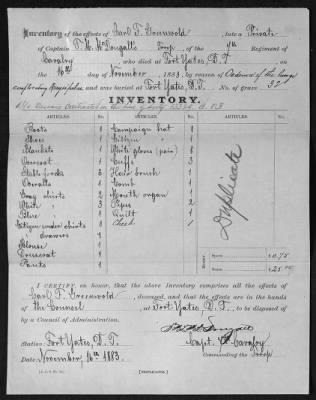 Inventory of the effects of Carl F. Greenvold, late a Private
of Captain T. M. McDougall's Troop, of the 7th Regiment of
Cavalry, who died at Fort Yates, D. T
on the 16th day of November, 1883, by reason of Oedema of the lungs
complicating and was buried at Fort Yates, D. T. No. of grave 32
Disease contracted in the line of duty
INVENTORY.
ARTICLES. No. ARTICLES. No. ARTICLES. No.
Boots 1 Campaign hat 1
Shoes 1 1
Blankets 1 White gloves (pair) 8
Overcoat 1 Cuffs 3
Stable frocks 2 Hair brush 1
Overalls 1 Comb 1
Gray shirts 2 Mouth organ 1
White " 3 Pipes 2
Blue " 1 Quilt 1
Citizen under shirts 1 Chest 1
" drawers 1
Blouse 1
Dresscoat 1
Pants 1
Duplicate
ARTICLES
Money
ARTICLES
$ 0.75
$ 25.00
I CERTIFY, on honor, that the above Inventory comprises all the effects
of Carl F. Greenvold, deceased, and that the effects are in the hands
of the Council, at Fort Yates, D. T., to be disposed of
by a Council of Administration.
Station: Fort Yates, D. T.
Capt. 7th Cavalry
Date: November, 16th 1883.
Commanding the Troop